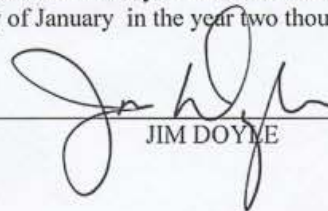 of January in the year two thou
Jim Doyle
JIM DOYLE